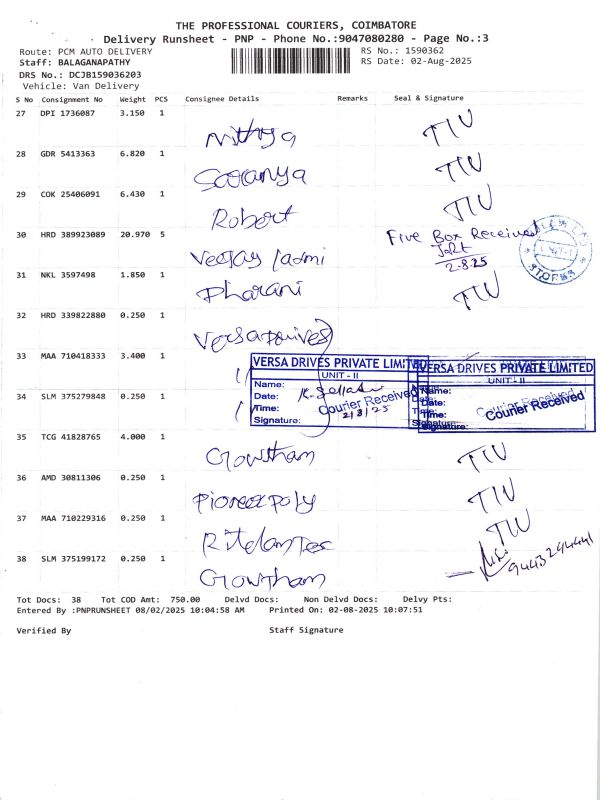 THE PROFESSIONAL COURIERS, COIMBATORE
Delivery Runsheet - PNP - Phone No.:9047080280 - Page No.:3
Route: PCM AUTO DELIVERY
RS No.: 1590362
Staff: BALAGANAPATHY
RS Date: 02-Aug-2025
DRS No.: DCJB159036203
Vehicle: Van Delivery
S No Consignment No Weight PCS Consignee Details Remarks Seal & Signature
27 DPI 1736087 3.150 1
Nithya
28 GDR 5413363 6.820 1
Saranya
29 COK 25406091 6.430 1
Robert
30 HRD 389923089 20.970 5
Five Box Received
2-8-25
STORES
31 NKL 3597498 1.850 1
Pharani
32 HRD 339822880 0.250 1
Versa Drives
33 MAA 710418333 3.400 1
VERSA DRIVES PRIVATE LIMITED VERSA DRIVES PRIVATE LIMITED
UNIT - II UNIT - II
Name: Name:
34 SLM 375279848 0.250 1
Date: Date:
Time: Courier Received Time: Courier Received
2/8/25
Signature: Signature:
35 TCG 41828765 4.000 1
Gowtham
36 AMD 30811306 0.250 1
Pioneer poly
37 MAA 710229316 0.250 1
38 SLM 375199172 0.250 1
9443294441
Gowtham
Tot Docs: 38 Tot COD Amt: 750.00 Delvd Docs: Non Delvd Docs: Delvy Pts:
Entered By :PNPRUNSHEET 08/02/2025 10:04:58 AM Printed On: 02-08-2025 10:07:51
Verified By Staff Signature